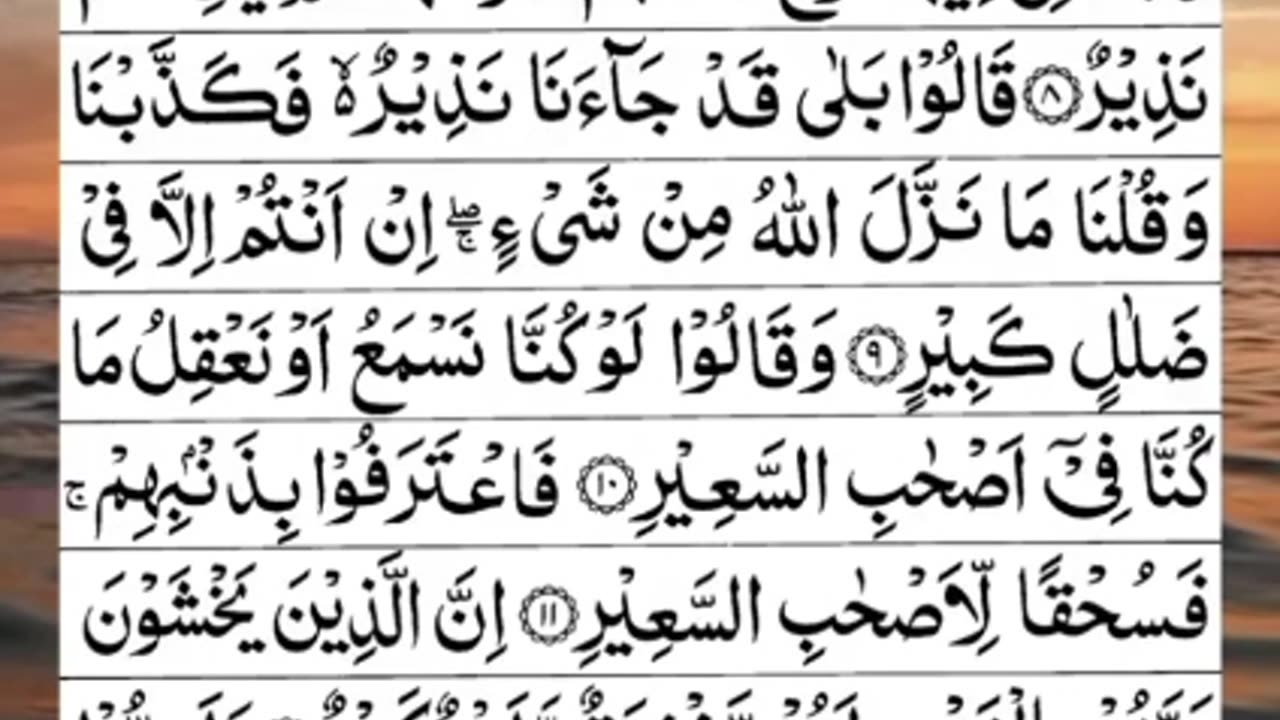 نَذِيْرٌ ﴿۸﴾ قَالُوْا بَلٰى قَدْ جَآءَنَا نَذِيْرٌ ۙ۬ فَكَذَّبْنَا
وَقُلْنَا مَا نَزَّلَ اللّٰهُ مِنْ شَىْءٍ ۖۚ اِنْ اَنْتُمْ اِلَّا فِىْ
ضَلٰلٍ كَبِيْرٍ ﴿۹﴾ وَقَالُوْا لَوْ كُنَّا نَسْمَعُ اَوْ نَعْقِلُ مَا
كُنَّا فِىْۤ اَصْحٰبِ السَّعِيْرِ ﴿۱۰﴾ فَاعْتَرَفُوْا بِذَنْۢبِهِمْ ۚ
فَسُحْقًا لِّاَصْحٰبِ السَّعِيْرِ ﴿۱۱﴾ اِنَّ الَّذِيْنَ يَخْشَوْنَ